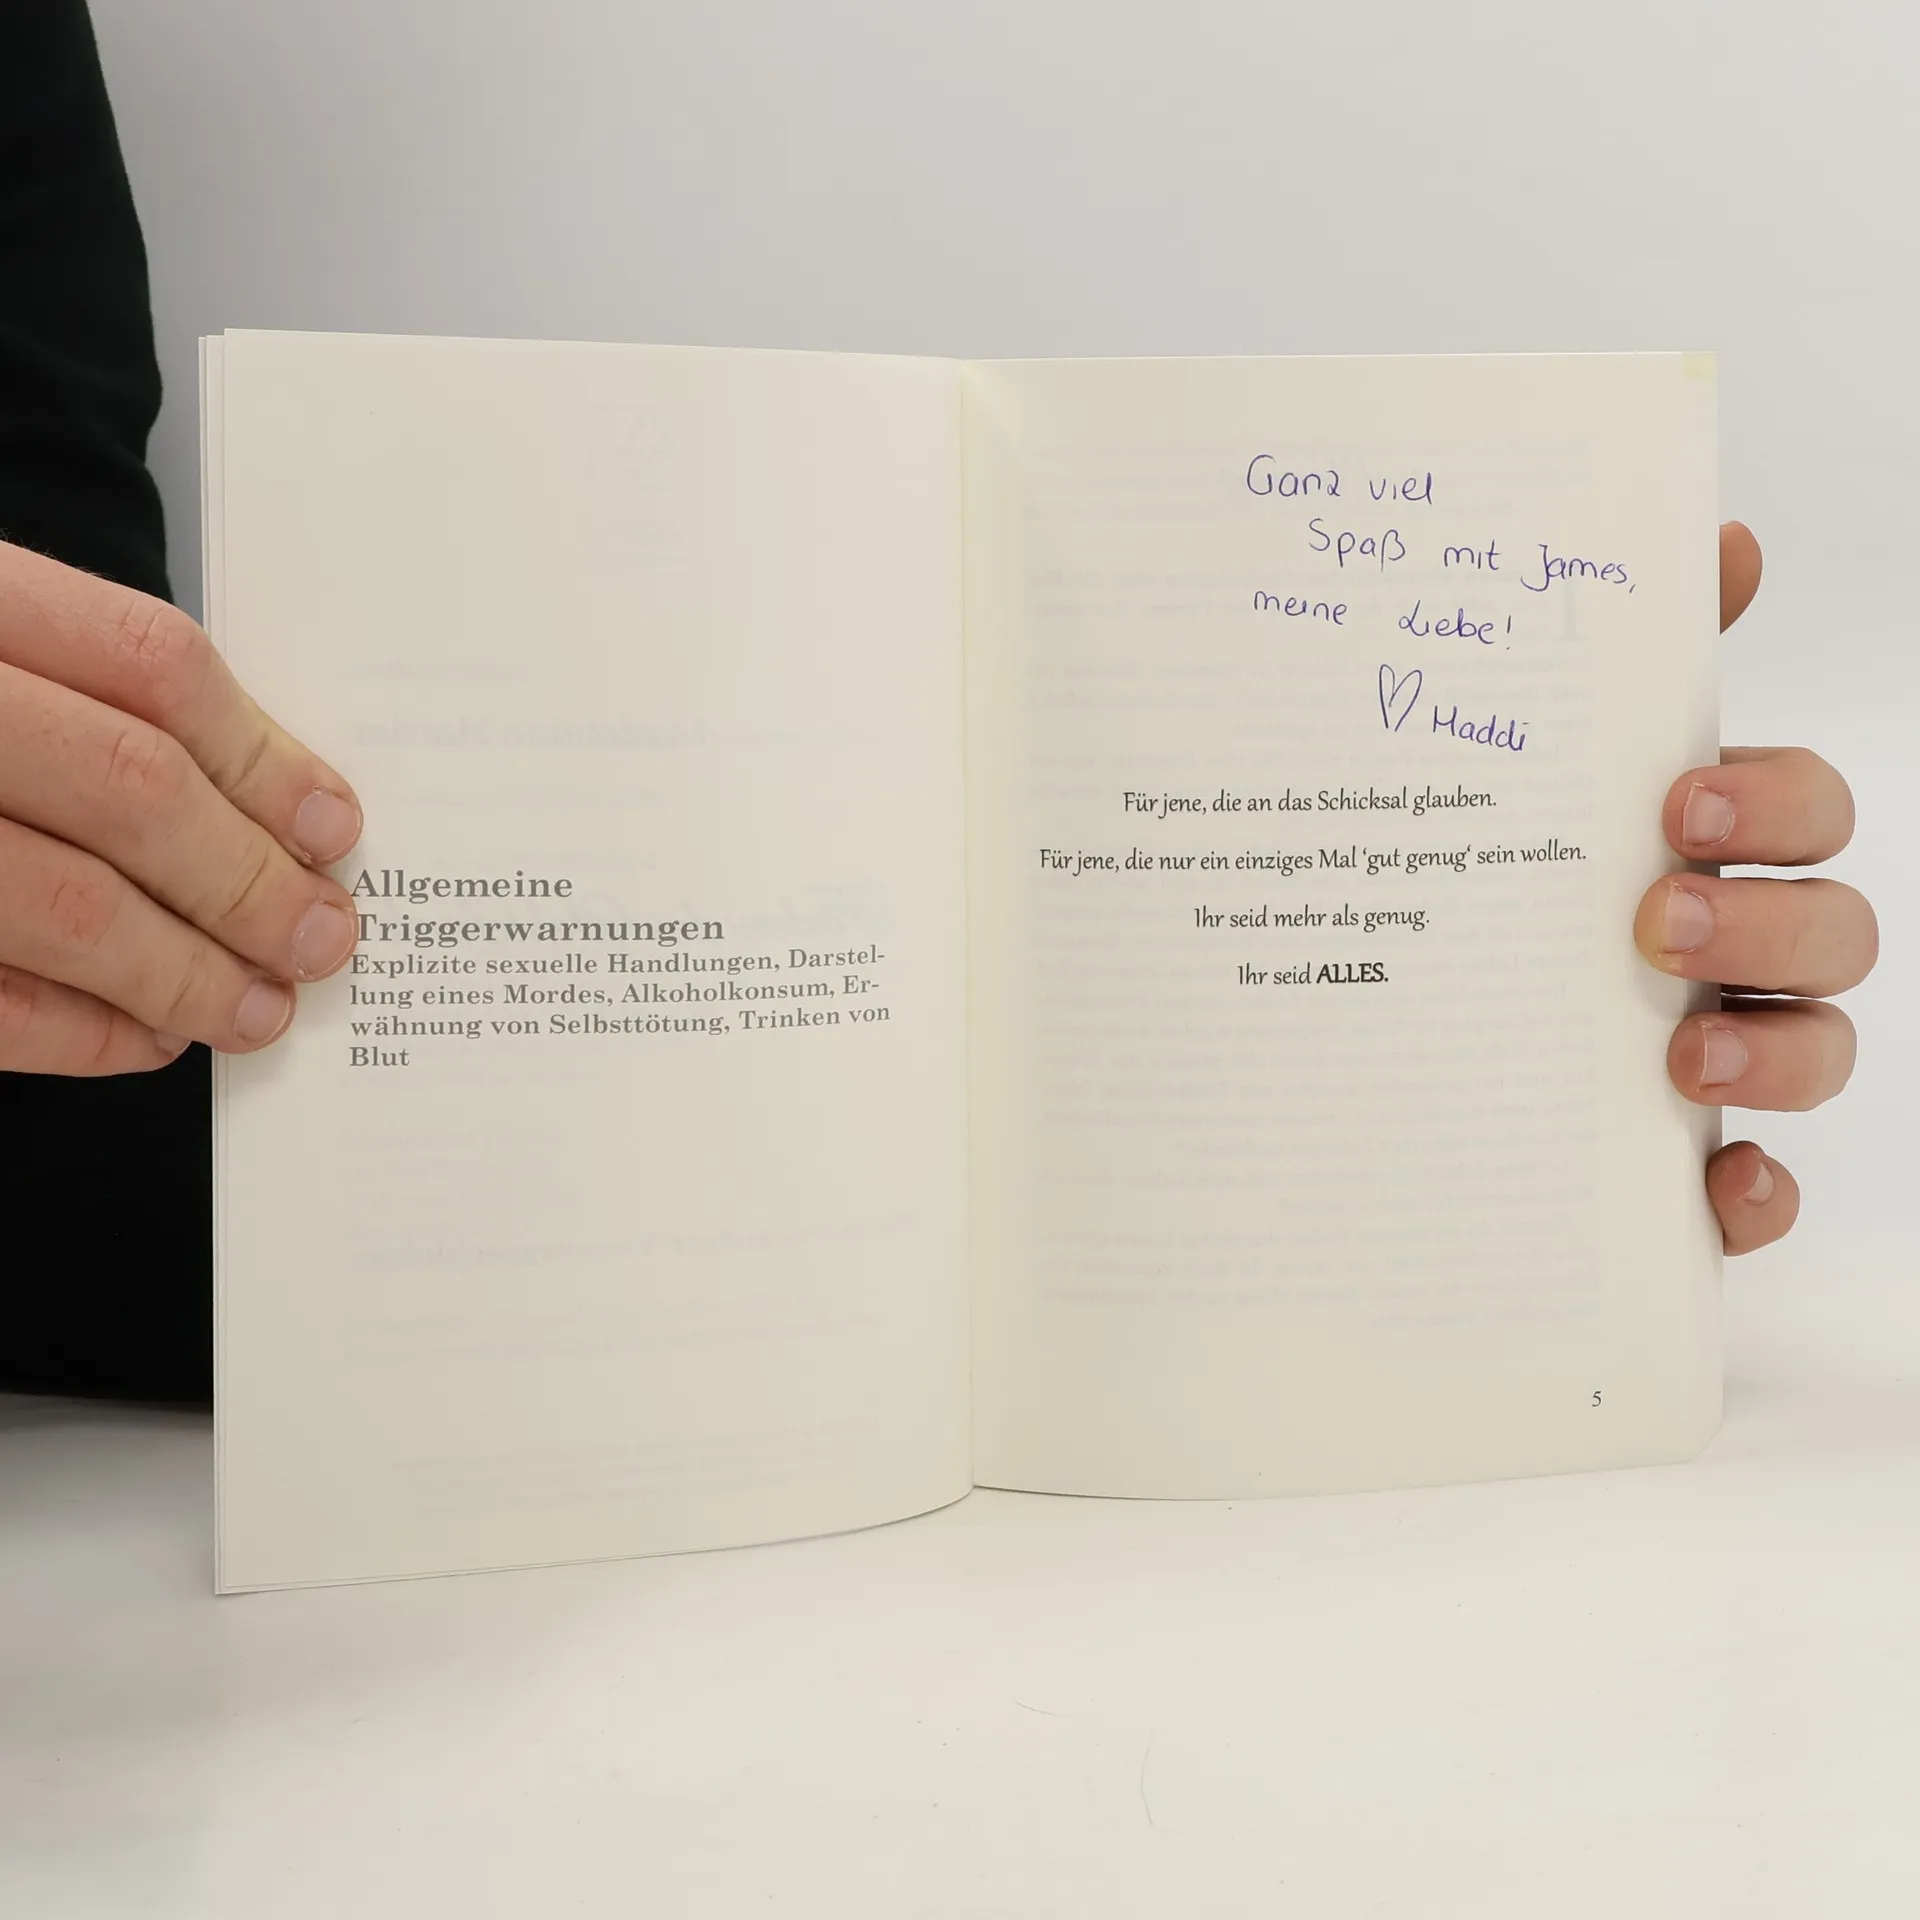 Allgemeine
Triggerwarnungen
Explizite sexuelle Handlungen, Darstel-
lung eines Mordes, Alkoholkonsum, Er-
wähnung von Selbsttötung, Trinken von
Blut
Ganz viel
Spaß mit James,
meine Liebe!
♡ Maddi
Für jene, die an das Schicksal glauben.
Für jene, die nur ein einziges Mal ‘gut genug‘ sein wollen.
Ihr seid mehr als genug.
Ihr seid ALLES.
5